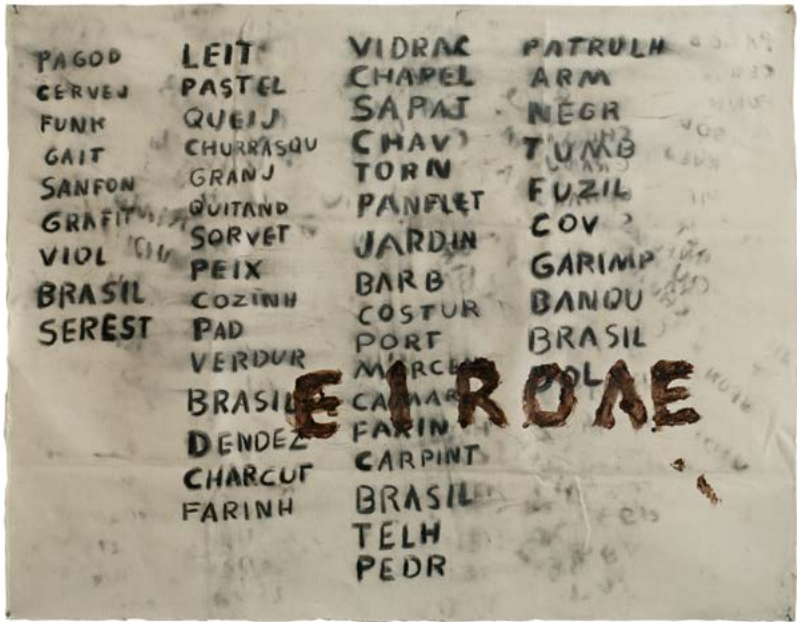 PAGOD
CERVEJ
FUNK
GAIT
SANFON
GRAFIT
VIOL
BRASIL
SEREST
LEIT
PASTEL
QUEIJ
CHURRASQU
GRANJ
QUITAND
SORVET
PEIX
COZINH
PAD
VERDUR
BRASIL
DENDEZ
CHARCUT
FARINH
VIDRAC
CHAPEL
SAPAT
CHAV
TORN
PANFLET
JARDIN
BARB
COSTUR
PORT
MARCEN
CAMAR
FARIN
CARPINT
BRASIL
TELH
PEDR
PATRULH
ARM
NEGR
TUMB
FUZIL
COV
GARIMP
BANQU
BRASIL
EIROAE